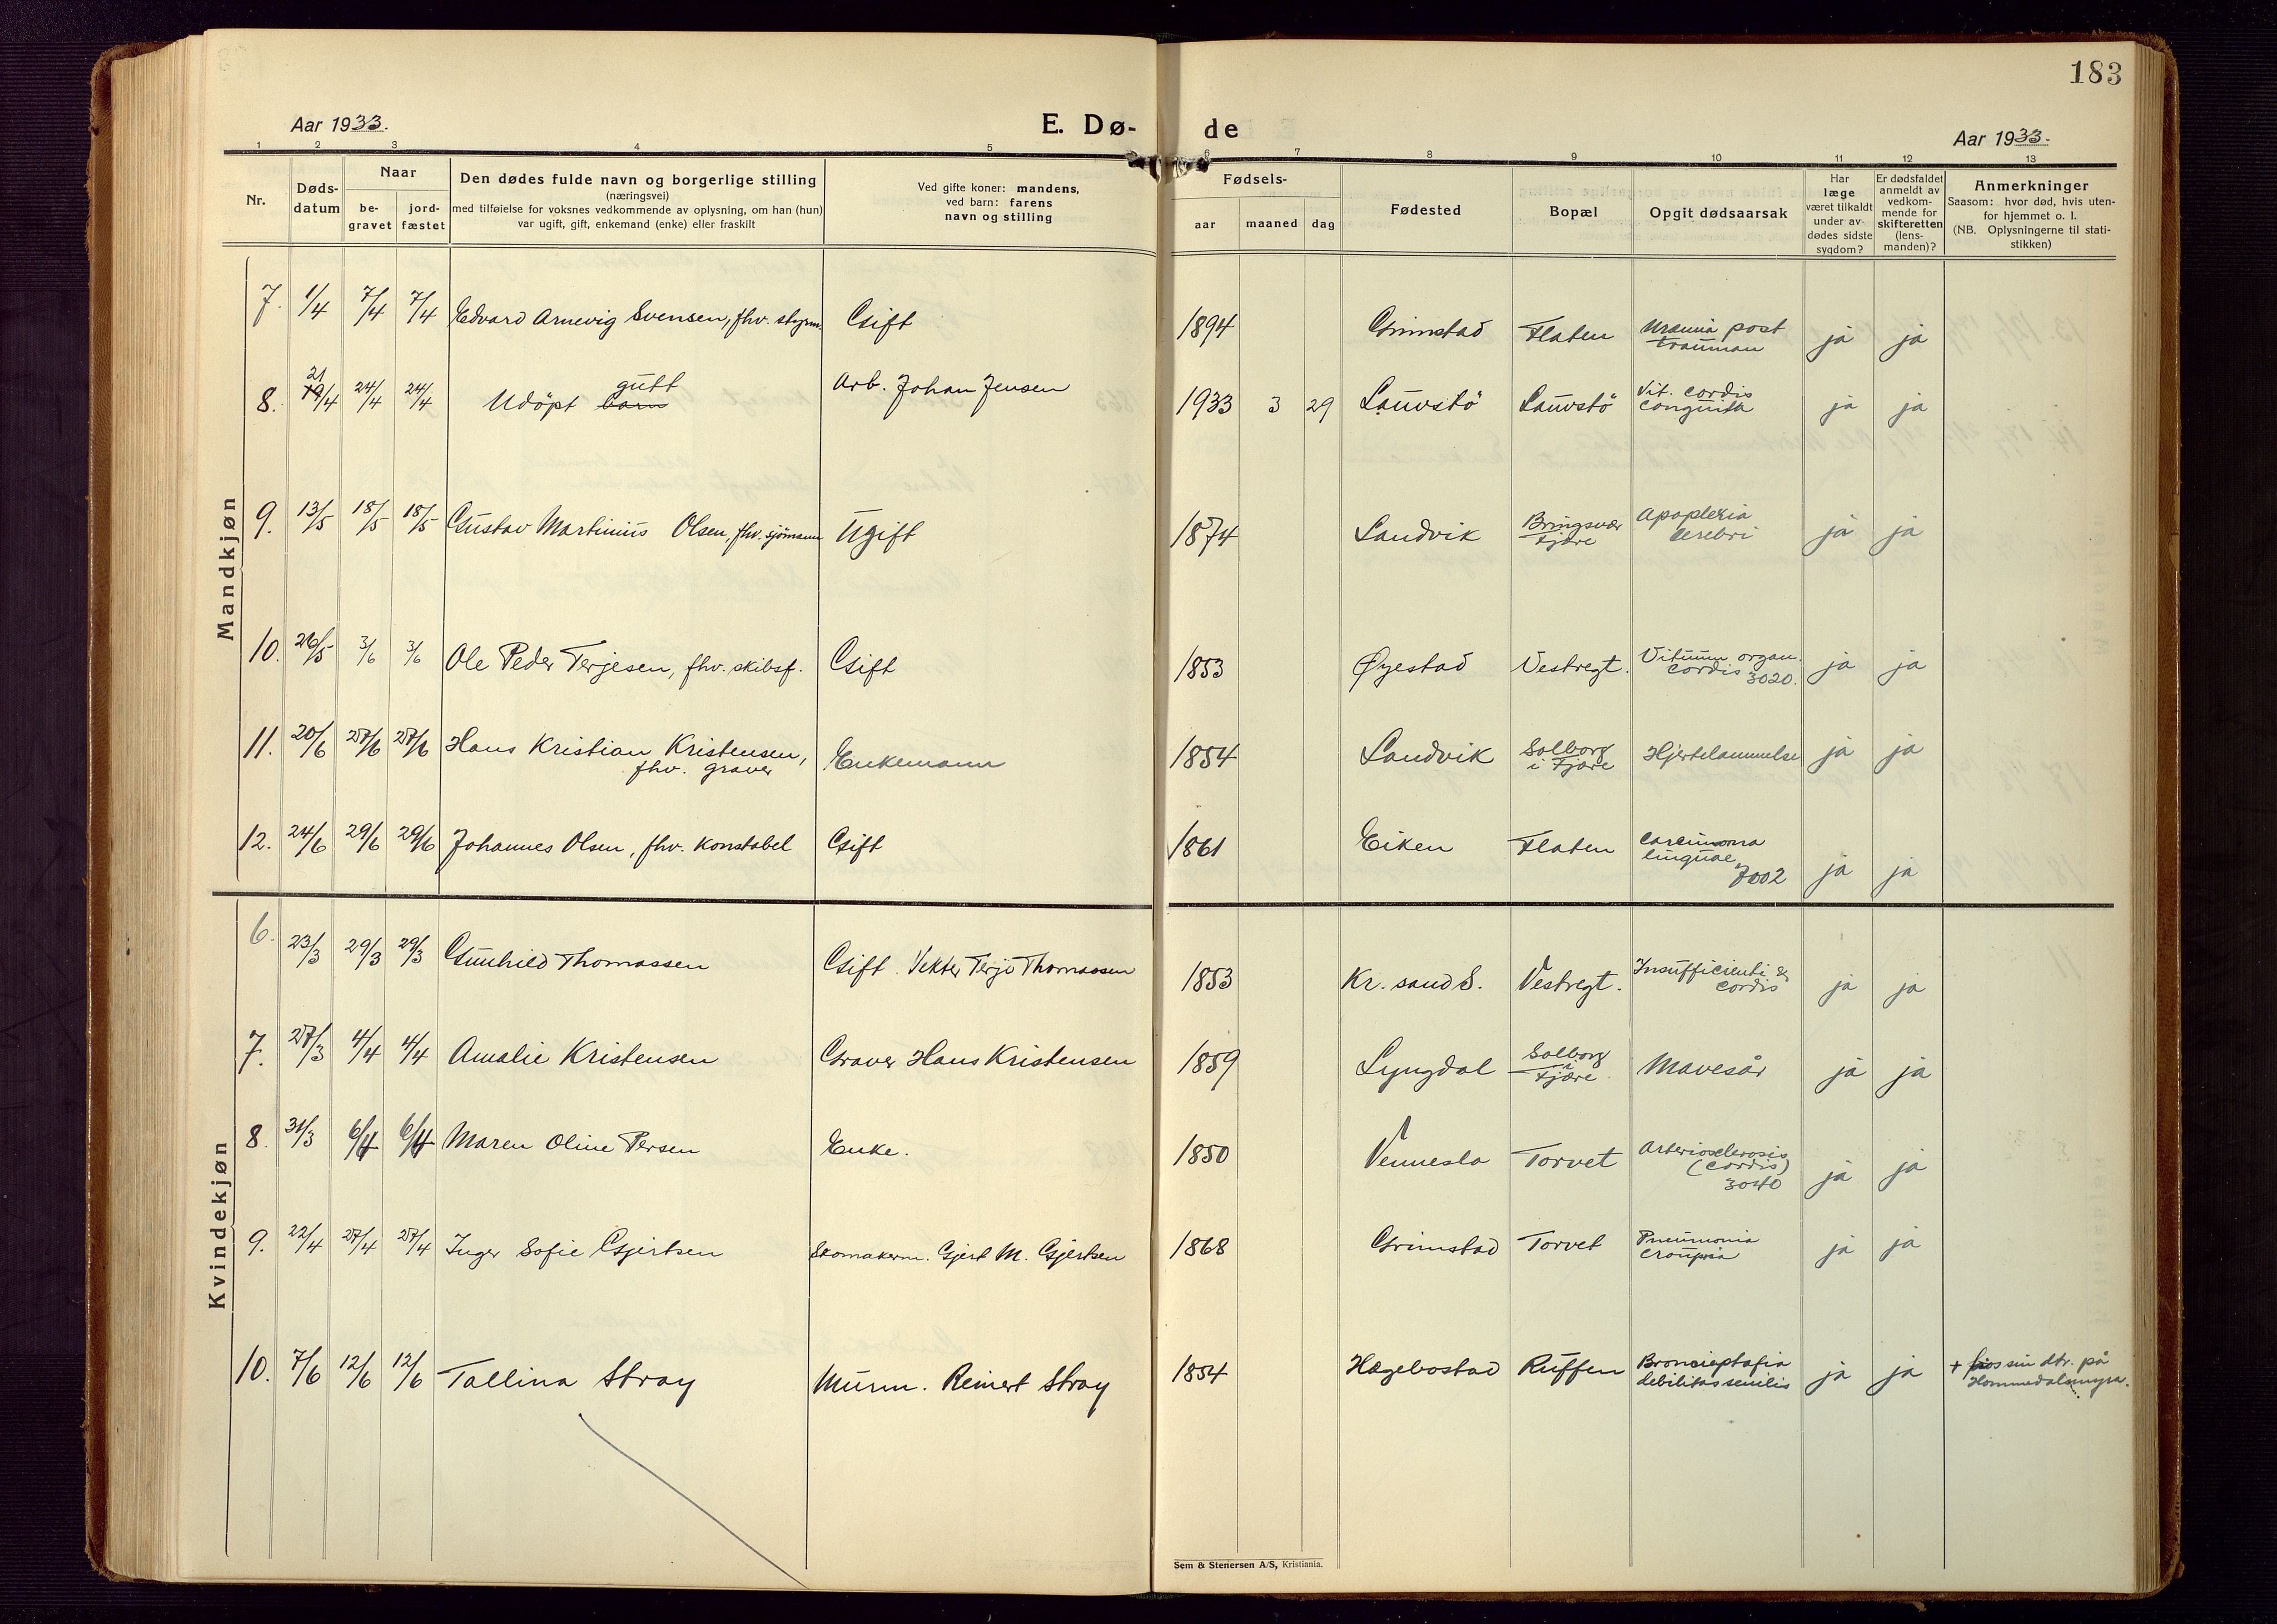 183
Aar 1933.
E. Dø- de
Aar 1933.
1 2 3 4 5 6 7 8 9 10 11 12 13
Nr.
Døds-
datum
Naar
be-
gravet
jord-
fæstet
Den dødes fulde navn og borgerlige stilling
(næringsvei)
med tilføielse for voksnes vedkommende av oplysning, om han (hun)
var ugift, gift, enkemand (enke) eller fraskilt
Ved gifte koner: mandens,
ved barn: farens
navn og stilling
Fødsels-
aar maaned dag
Fødested
Bopæl
Opgit dødsaarsak
Har
læge
været tilkaldt
under av-
dødes sidste
sygdom?
Er dødsfaldet
anmeldt av
vedkom-
mende for
skifteretten
(lens-
manden)?
Anmerkninger
Saasom: hvor død, hvis uten-
for hjemmet o. l.
(NB. Oplysningerne til stati-
stikken)
Mandkjøn
7. 1/4 7/4 7/4 Edvard Arnevig Svensen, fhv. styrm. Gift 1894 Grimstad Flaten Uræmia post
trauman ja ja
8. 21
19/4 24/4 24/4 Udöpt barn gutt Arb. Johan Jensen 1933 3 29 Lauvstö Lauvstö Vit. cordis
congenita ja ja
9. 13/5 18/5 18/5 Gustav Martinius Olsen, fhv. sjömann Ugift 1874 Landvik Bringsvær
Fjære Apoplexia
cerebri ja ja
10. 26/5 3/6 3/6 Ole Peder Terjesen, fhv. skibsf. Gift 1853 Øyestad Vestregt. Vitium organ.
cordis
3020. ja ja
11. 20/6 27/6 27/6 Hans Kristian Kristensen,
fhv. graver Enkemann 1854 Landvik Solborg
i Fjære Hjertelammelse ja ja
12. 24/6 29/6 29/6 Johannes Olsen, fhv. konstabel Gift 1861 Eiken Flaten Carcinoma
linguae
7002 ja ja
Kvindekjøn
6. 23/3 29/3 29/3 Gunhild Thomassen Gift. Vekter Terje Thomassen 1853 Kr. sand S. Vestregt. Insufficientia
cordis ja ja
7. 27/3 4/4 4/4 Amalie Kristensen Graver Hans Kristensen 1859 Lyngdal Solborg
i
Fjære Mavesår ja ja
8. 31/3 6/4 6/4 Maren Oline Persen Enke. 1850 Vennesla Torvet Arteriosclerosis
(cordis)
3040 ja ja
9. 22/4 27/4 27/4 Inger Sofie Gjertsen Skomakerm. Gjert M. Gjertsen 1868 Grimstad Torvet Pneumonia
croupøsa ja ja
10. 7/6 12/6 12/6 Tallina Stray Murm. Reinert Stray 1854 Hægebostad Ruffen
debilitas senilis ja ja + hos sin dtr. på
Hommedalsmyra.
Sem & Stenersen A/S, Kristiania.